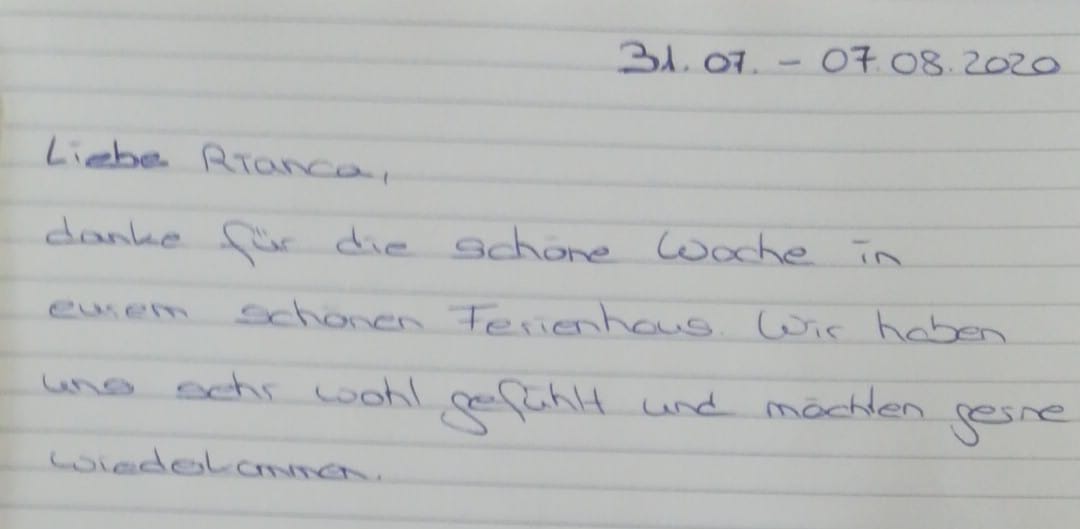 31.07. - 07.08.2020
Liebe Rianca,
danke für die schöne Woche in
eurem schönen Ferienhaus. Wir haben
uns sehr wohl gefühlt und möchten gerne
wiederkommen.